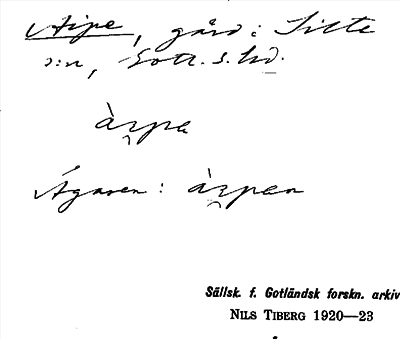 Aipe, gård i Silte
s:n, Gotl. s. hd.
àı̯pa
Ägaren: àı̯pan
Sällsk. f. Gotländsk forskn. arkiv
NILS TIBERG 1920—23